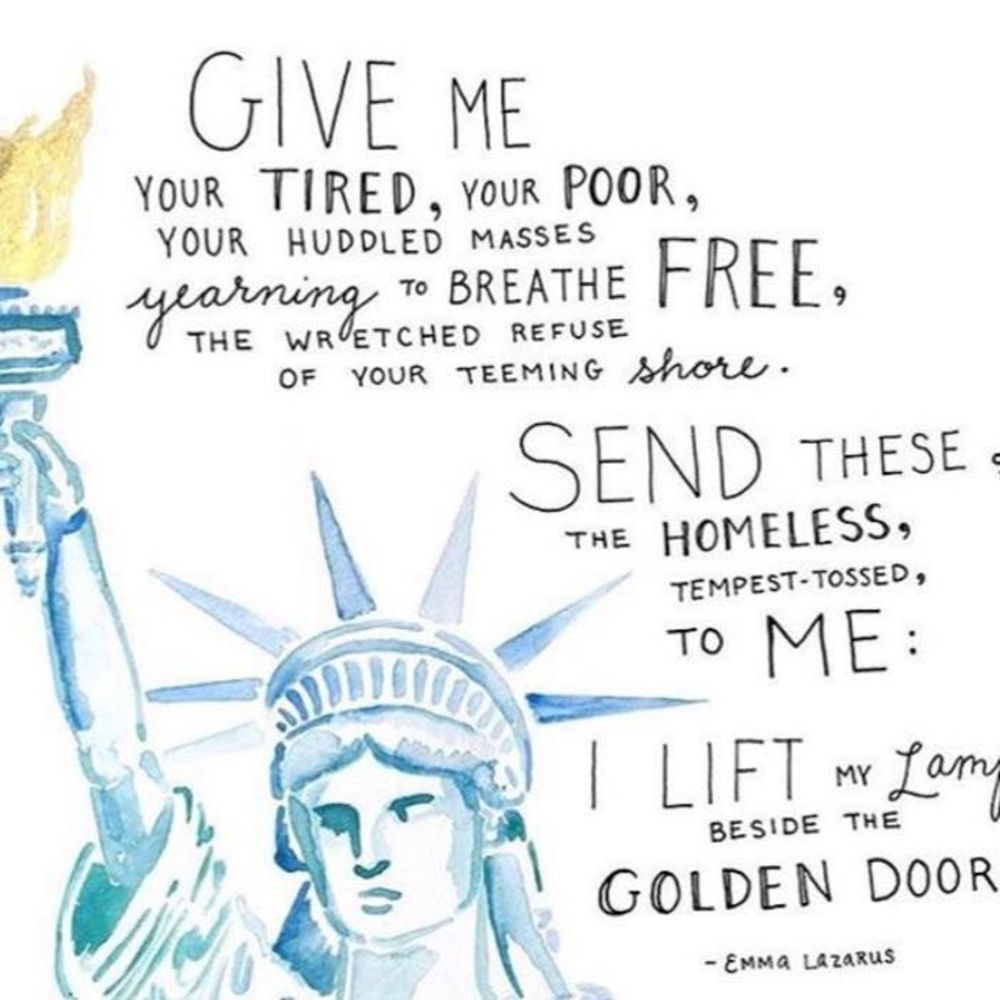 GIVE ME
YOUR TIRED, YOUR POOR,
YOUR HUDDLED MASSES
yearning TO BREATHE FREE,
THE WRETCHED REFUSE
OF YOUR TEEMING shore.
SEND THESE,
THE HOMELESS,
TEMPEST-TOSSED,
TO ME:
I LIFT MY Lamp
BESIDE THE
GOLDEN DOOR
- EMMA LAZARUS